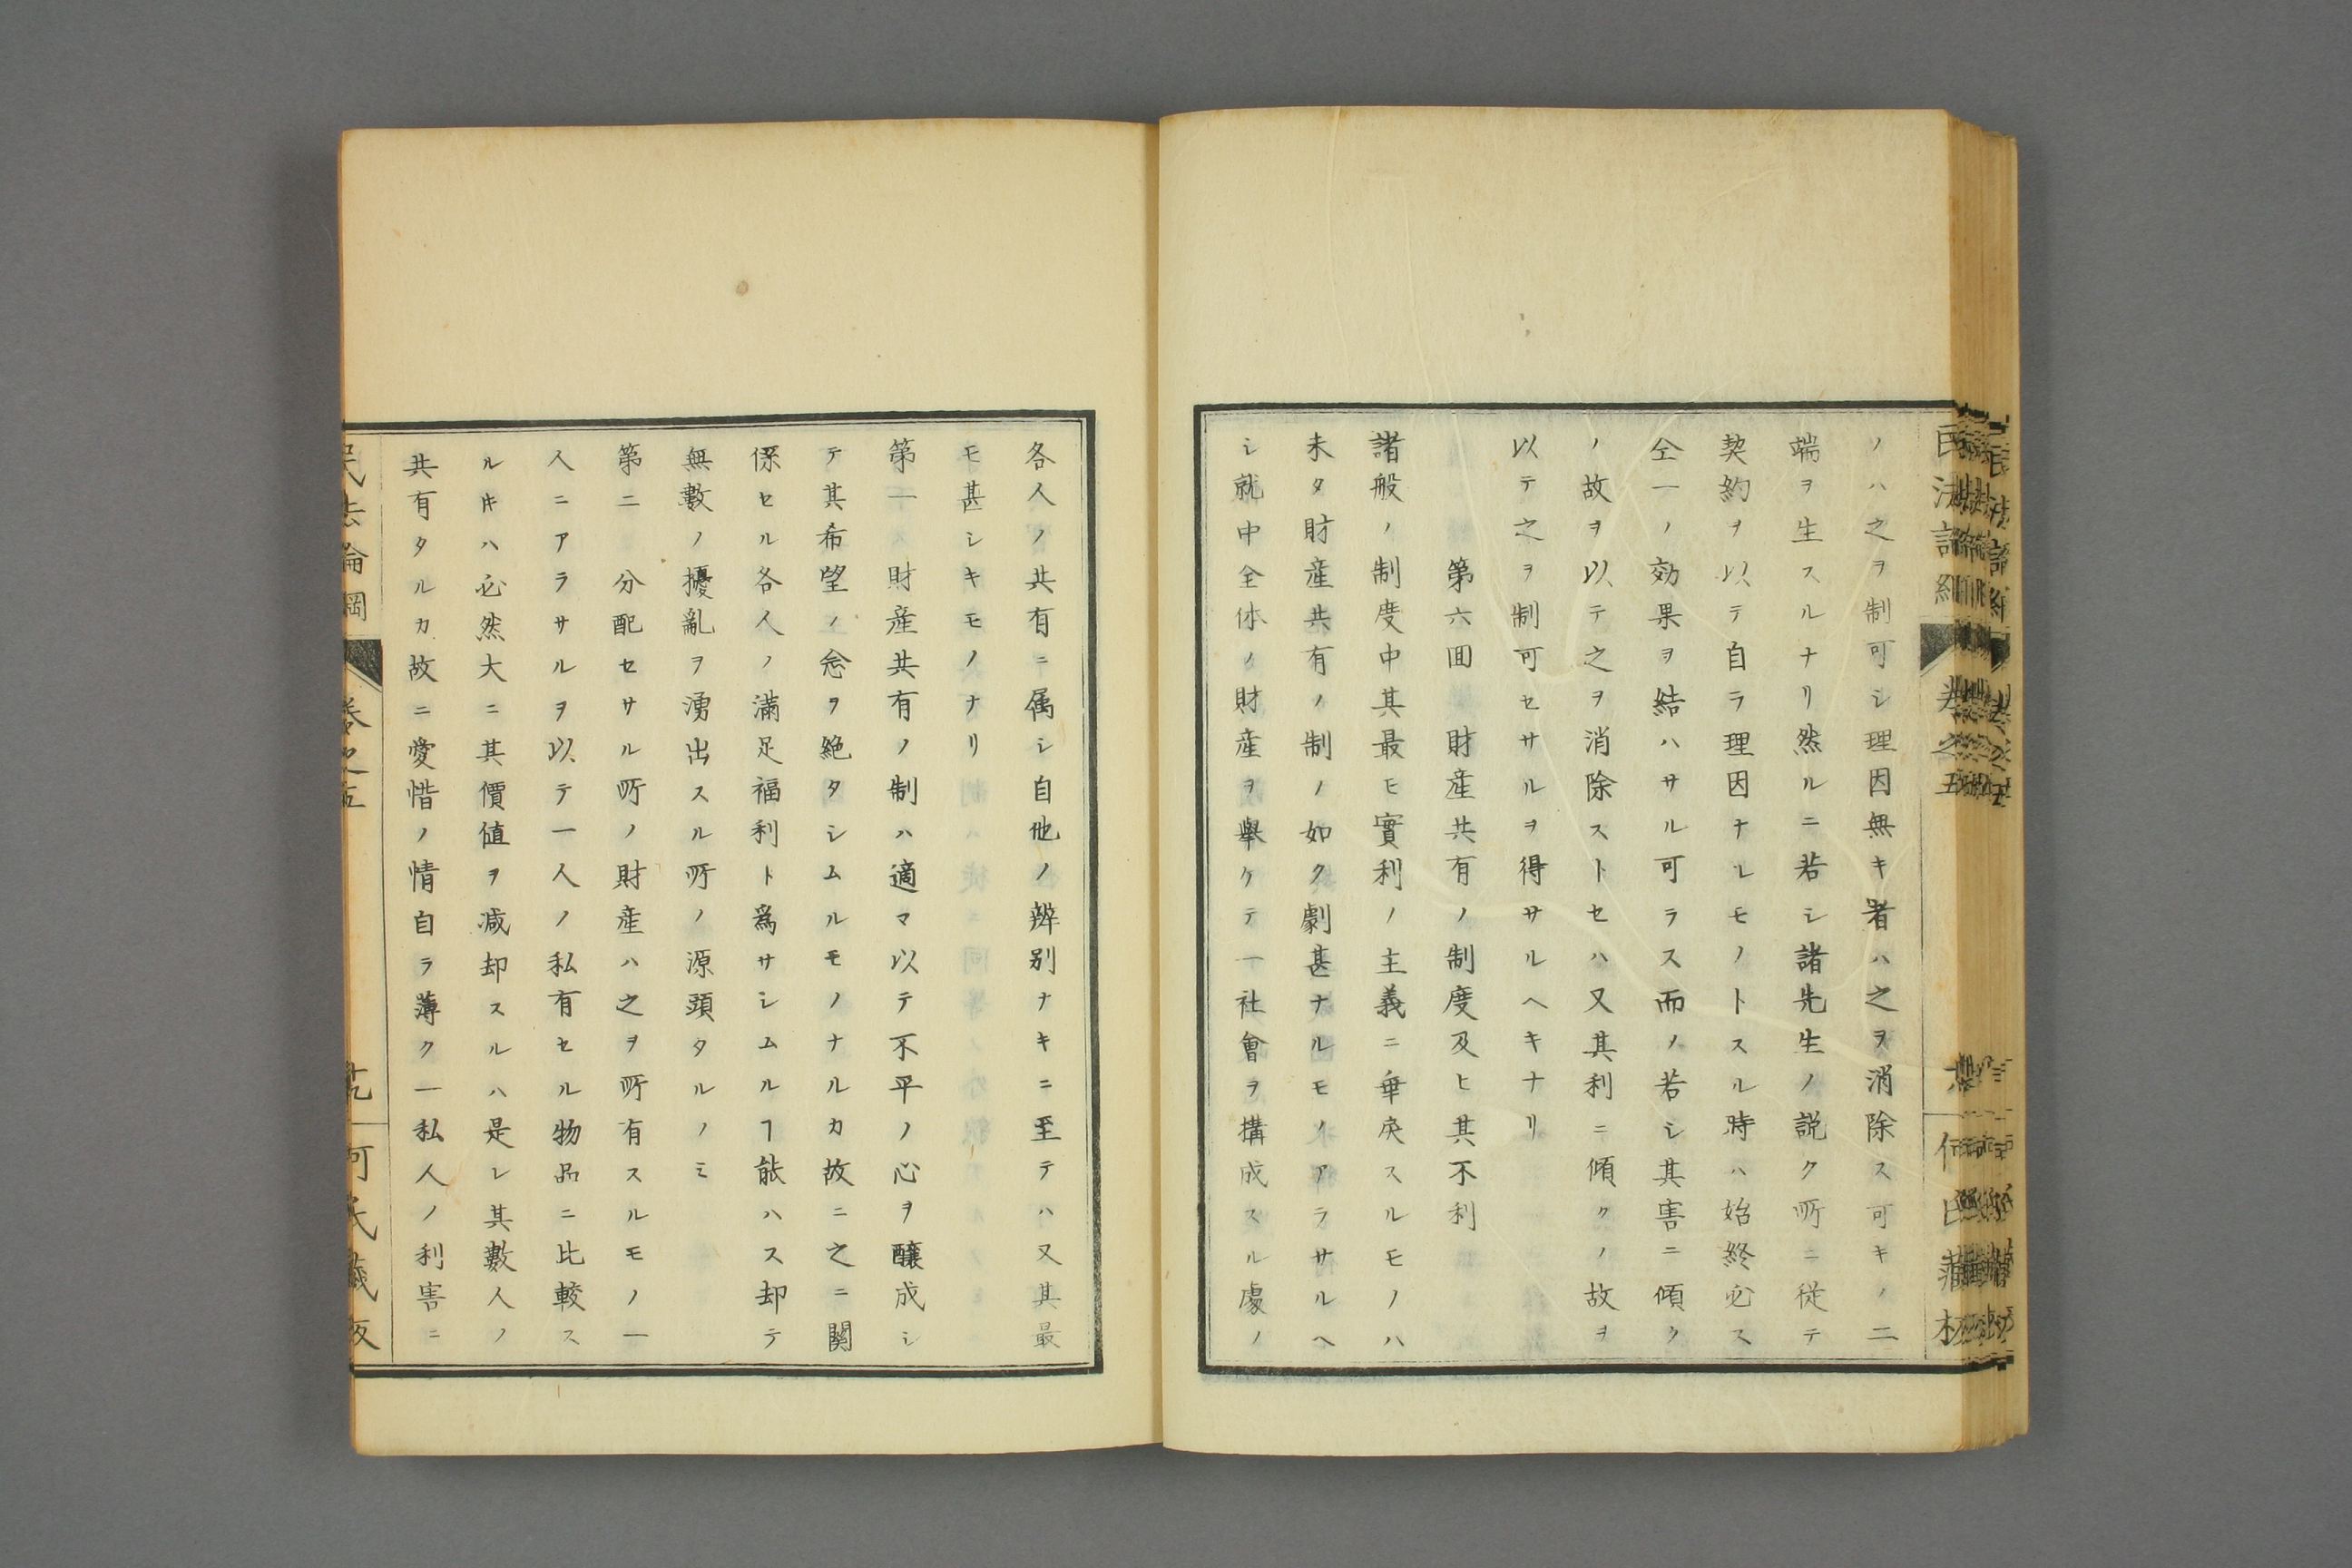 ノハ之ヲ制可シ理因無キ者ハ之ヲ消除ス可キノ二
端ヲ生スルナリ然ルニ若シ諸先生ノ説ク所ニ従テ
契約ヲ以テ自ラ理因ナルモノトスル時ハ始終必ス
仝一ノ効果ヲ結ハサル可ラス而ノ若シ其害ニ傾ク
ノ故ヲ以テ之ヲ消除ストセハ又其利ニ傾クノ故ヲ
以テ之ヲ制可セサルヲ得サルヘキナリ
第六囬 財産共有ノ制度及ヒ其不利
諸般ノ制度中其最モ實利ノ主義ニ乖戻スルモノハ
未タ財産共有ノ制ノ如ク劇甚ナルモノアラサルヘ
シ就中全体ノ財産ヲ擧ケテ一社會ヲ搆成スル處ノ
各人ノ共有ニ属シ自他ノ辨別ナキニ至テハ又其最
モ甚シキモノナリ
第一 財産共有ノ制ハ適マ以テ不平ノ心ヲ釀成シ
テ其希望ノ念ヲ絶タシムルモノナルカ故ニ之ニ関
係セル各人ノ滿足福利ト爲サシムルヿ能ハス却テ
無數ノ擾亂ヲ湧出スル所ノ源頭タルノミ
第二 分配セサル所ノ財産ハ之ヲ所有スルモノ一
人ニアラサルヲ以テ一人ノ私有セル物品ニ比較ス
ルキハ必然大ニ其價値ヲ减却スルハ是レ其數人ノ
共有タルカ故ニ愛惜ノ情自ラ薄ク一私人ノ利害ニ
民法論綱 巻之五 何氏藏版